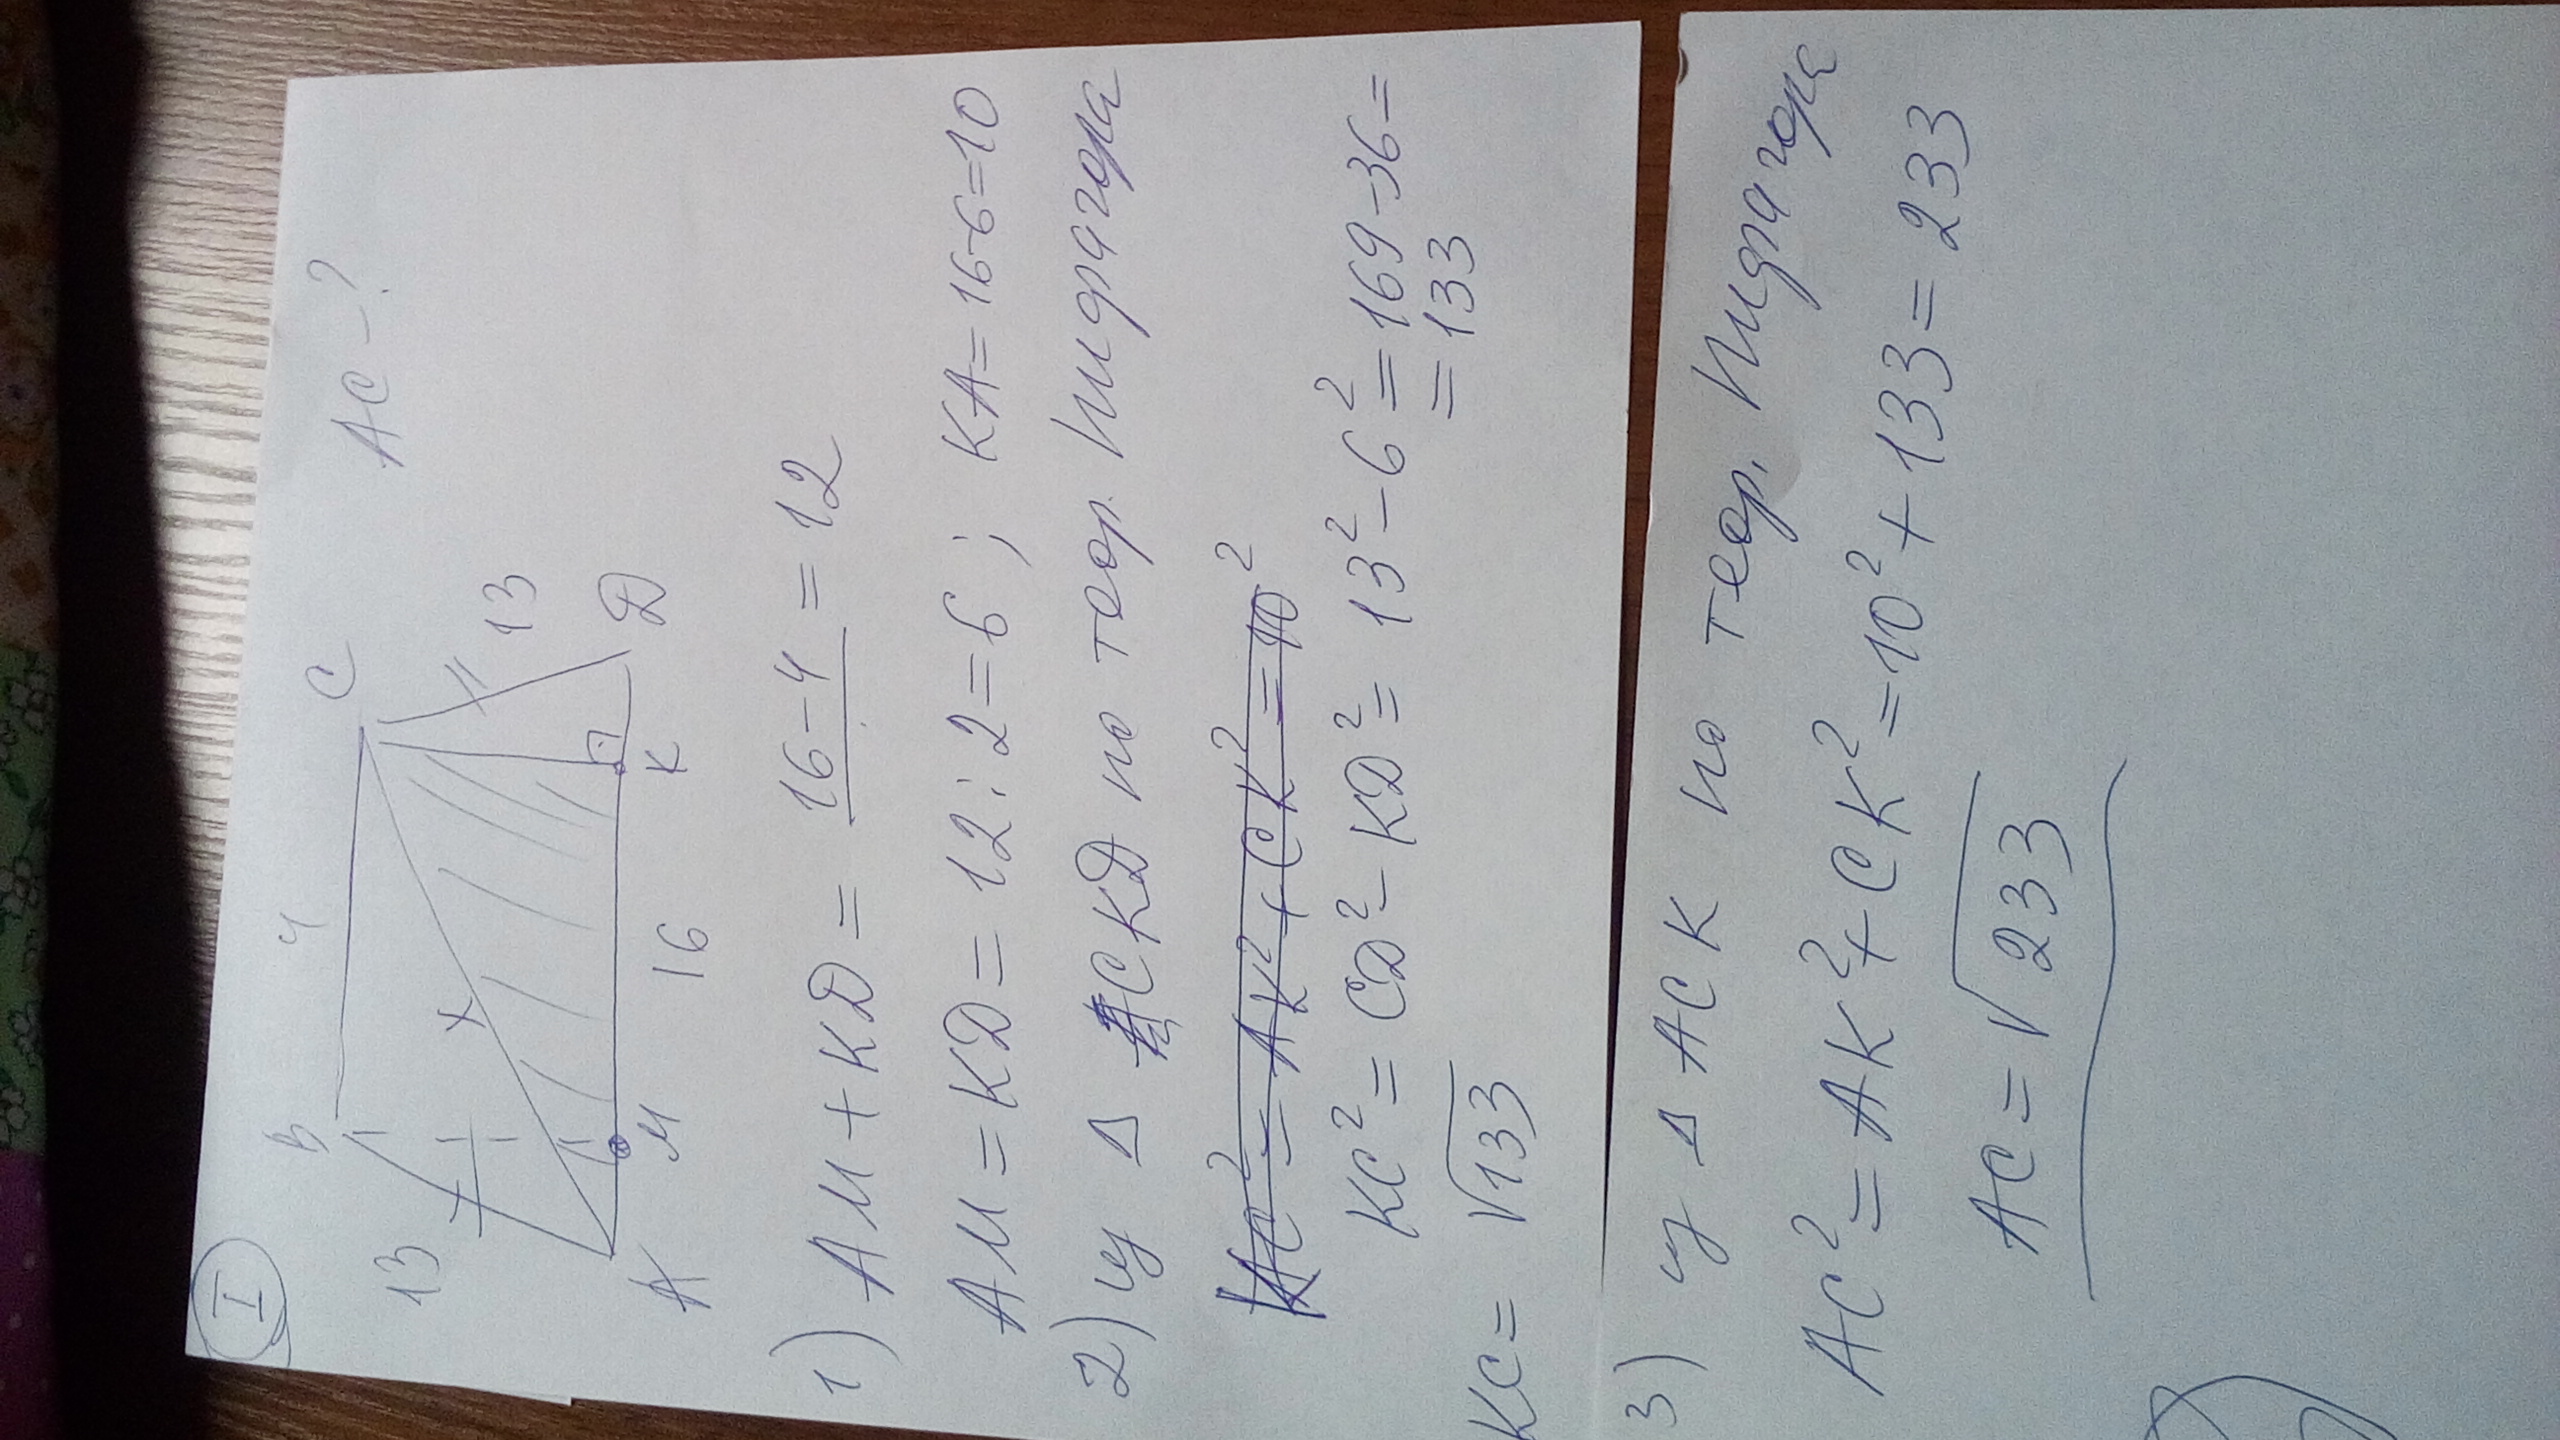 I
AC - ?
B 4 C
13 x 13
A M 16 K D
1) AM + KD = 16-4 = 12
AM = KD = 12 : 2 = 6 ; KA = 16-6 = 10
2) из Δ CKD по теор. Пифагора
AC² = AK² + CK² = 10²
KC² = CD² - KD² = 13² - 6² = 169 - 36 =
= 133
KC = √133
3) из Δ ACK по теор. Пифагора
AC² = AK² + CK² = 10² + 133 = 233
AC = √233